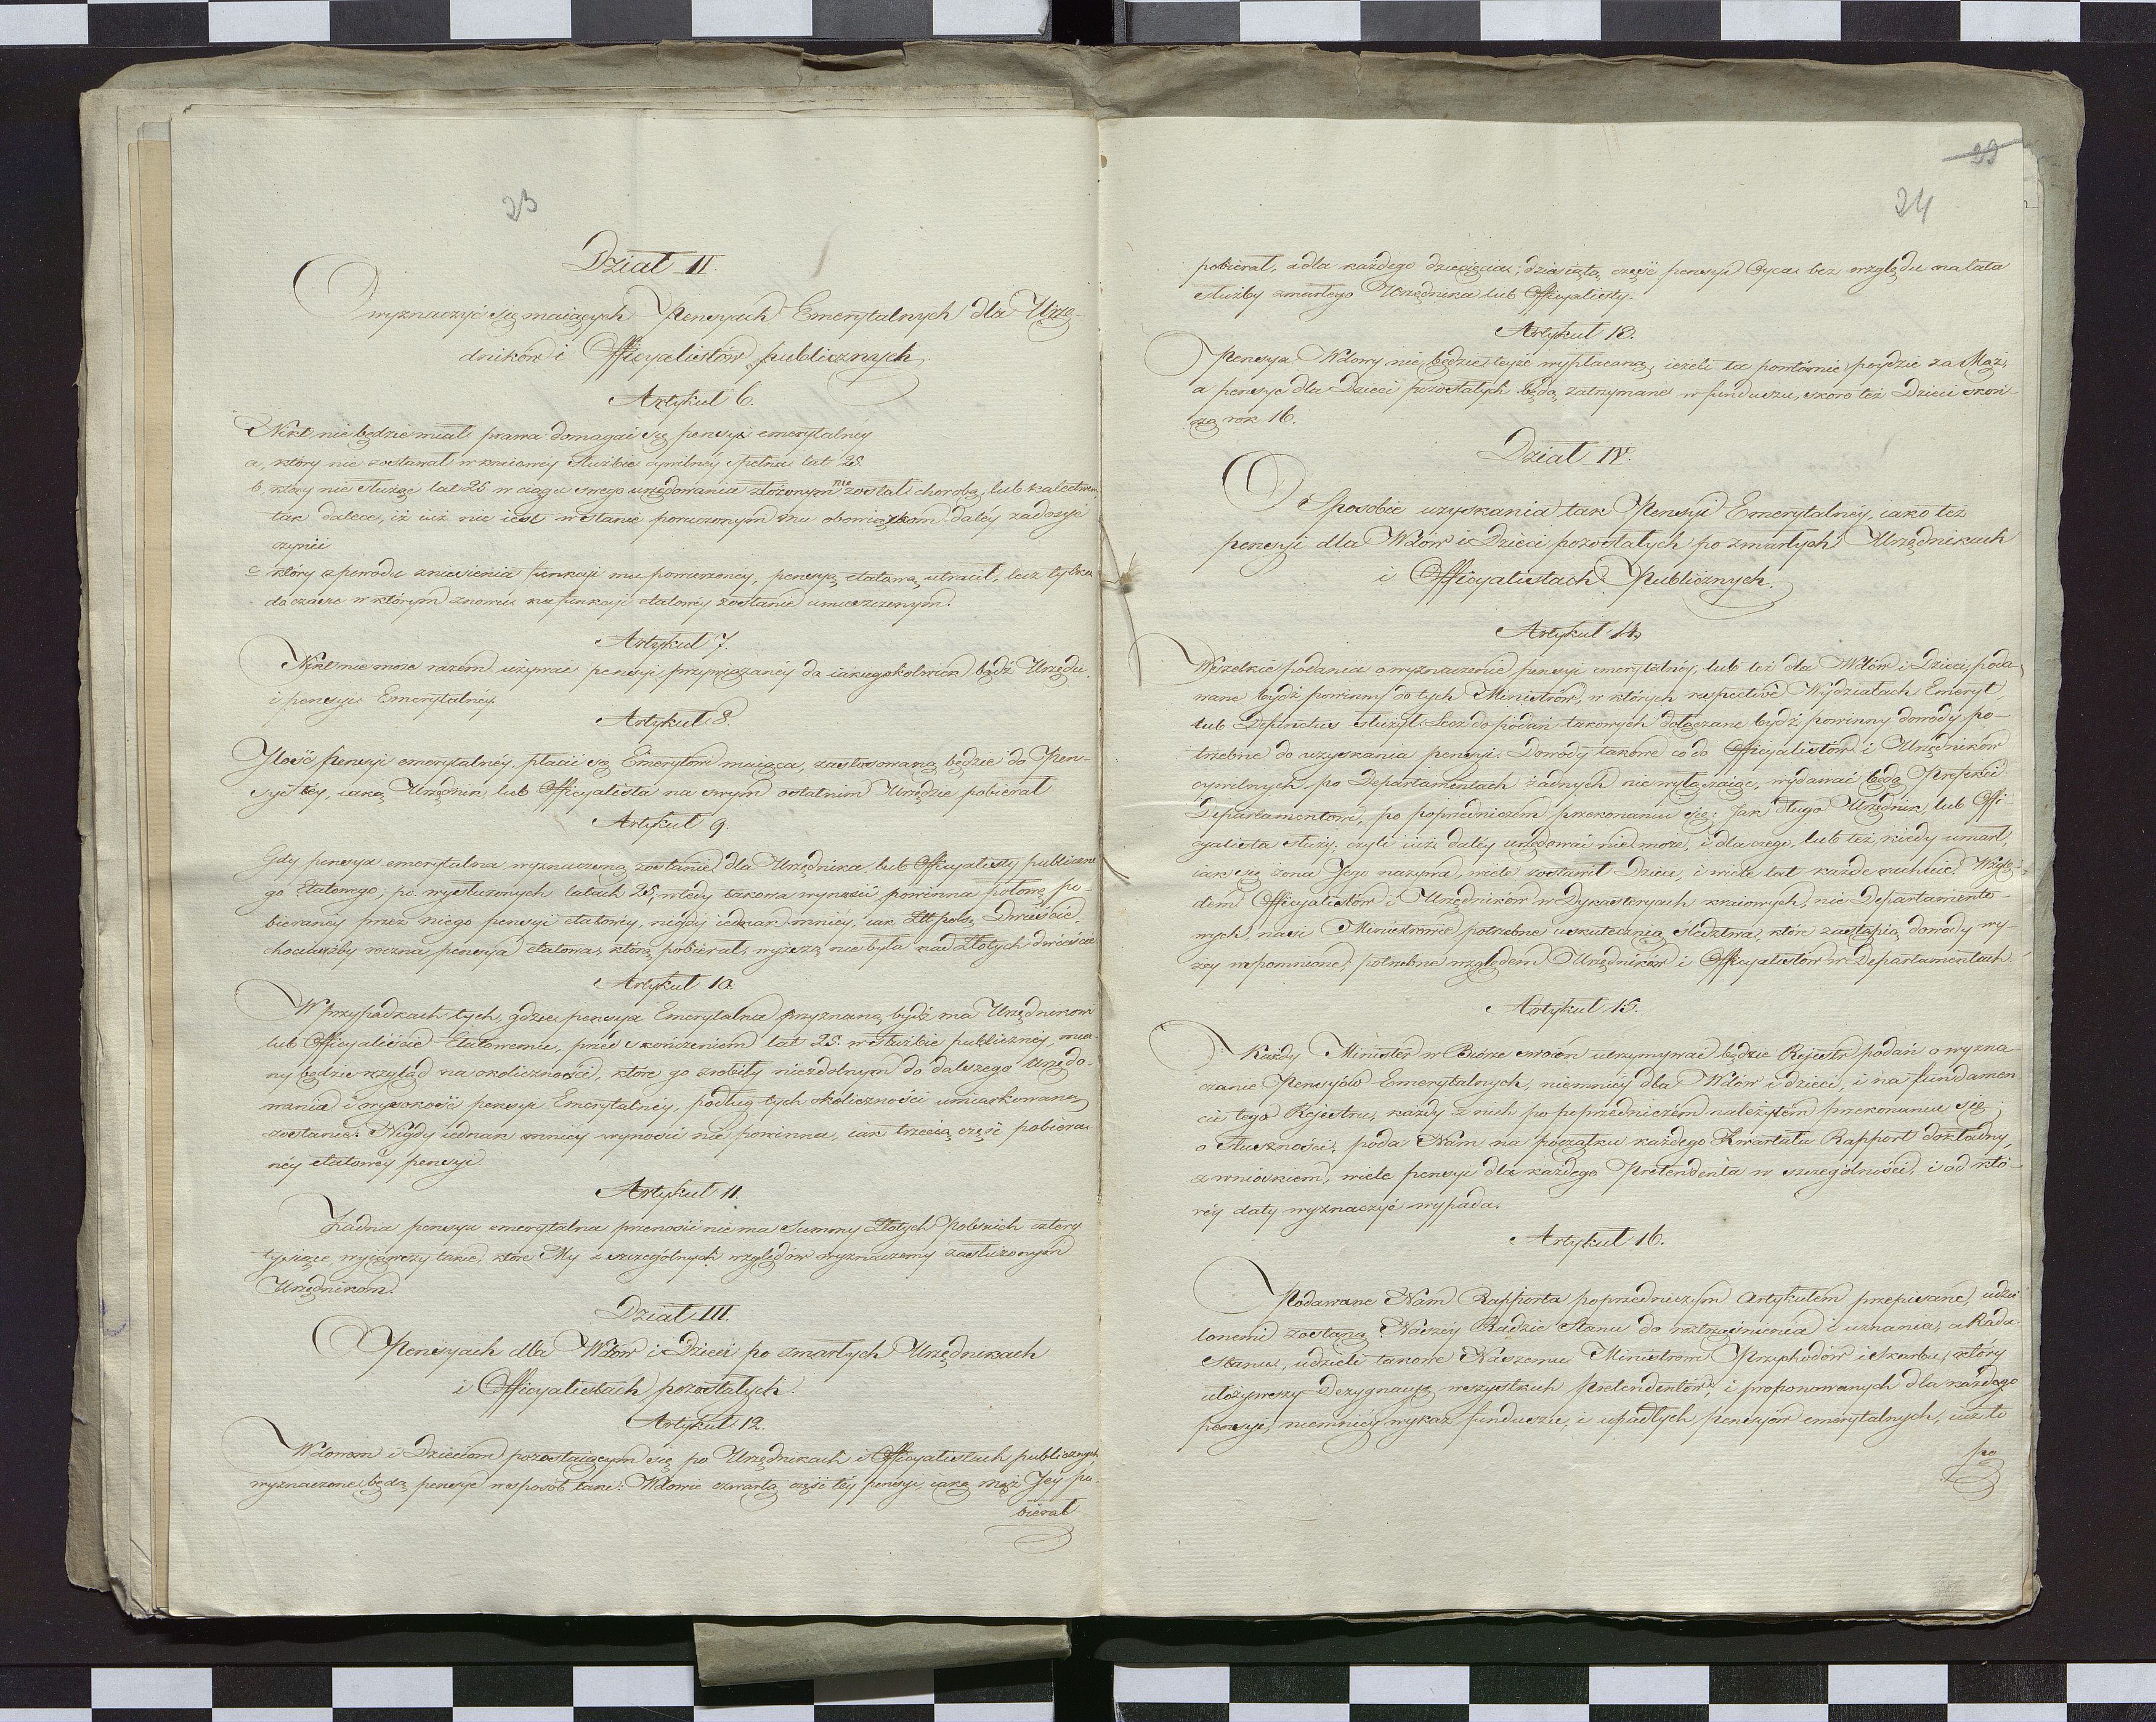 23
Dział II.
O wyznaczyć się maiących Pensyach Emerytalnych dla Urzę-
dników i Officyalistów publicznych.
Artykuł 6.
Nikt nie będzie miał prawa domagać się pensyi emerytalney
a, który nie zostawał w kraiowéy służbie cywilnéy pełne lat 25
b, który nie służąc lat 25 w ciągu swego urzędowania złożonym nie został chorobą, lub kalectwem,
tak dalece, iż iuż nie iest w stanie poruczonym mu obowiązkom daléy zadosyć
czynić
c który z powodu zniesienia funkcyi mu powierzonéy, pensyą etatową utracił, lecz tylko
do czasu w którym znowu na funkcyi etatowéy zostanie umieszczonym.
Artykuł 7.
Nikt nie może razem używać pensyi przywiązanéy do iakiegokolwiek bądź Urzędu,
i pensyi Emerytalnéy
Artykuł 8.
Ilość pensyi emerytalnéy, płacić się Emerytowi maiąca, zastosowaną będzie do Pen-
syi téy, iaką Urzędnik lub Officyalista na swym ostatnim Urzędzie pobierał
Artykuł 9.
Gdy pensya emerytalna wyznaczoną zostanie dla Urzędnika, lub Officyalisty publiczne
go Etatowego, po wysłużonych latach 25, wtedy takowa wynosić powinna połowę po-
bieranéy przez niego pensyi etatowéy, nigdy iednak mniéy, iak Złł: polsk: Dwieście,
chociażby roczna pensya etatowa, którą pobierał, wyższą nie była nad Złotych dwieście
Artykuł 10.
W przypadkach tych, gdzie pensya Emerytalna przyznaną bydź ma Urzędnikowi
lub Officyaliście Etatowemu, przed skończeniem lat 25. w służbie publicznéy, mia-
ny będzie wzgląd na okoliczności, które go zrobiły niezdolnym do dalszego urzędo-
wania i wysokość pensyi Emerytalnéy, podług tych okoliczności umiarkowaną
zostanie. Nigdy iednak mniéy wynosić nie powinna, iak trzecią część pobiera-
néy etatowéy pensyi
Artykuł 11.
Żadna pensya emerytalna przenosić nie ma Summy Złotych Polskich cztery
tysiące, wyiąwszy takie, które My z szczególnych względów wyznaczemy zasłużonym
Urzędnikom.
Dział III.
O Pensyach dla Wdów i Dzieci po zmarłych Urzędnikach
i Officyalistach pozostałych.
Artykuł 12.
Wdowom i Dzieciom pozostaiącym się po Urzędnikach i Officyalistach publicznych,
wyznaczone będą pensye w sposób taki: Wdowie czwarta część téy pensyi, iaką mąż Jéy po-
bierał
29
24
pobierał, a dla każdego dziecięcia, dziesiątą część pensyi Oyca bez względu na lata
służby zmarłego Urzędnika lub Officyalisty.
Artykuł 13.
Pensya Wdowy nie będzie téyże wypłacaną, ieżeli ta powtórnie póydzie za Mąż,
a pensye dla Dzieci pozostałych będą zatrzymane w funduszu, skoro też Dzieci skoń-
czą rok 16.
Dział IV.
O Sposobie uzyskania tak Pensyi Emerytalnéy, iako też
pensyi dla Wdów i Dzieci pozostałych po zmarłych Urzędnikach
i Officyalistach Publicznych.
Artykuł 14.
Wszelkie podania o wyznaczenie pensyi emerytalnéy, lub też dla Wdów i Dzieci, poda-
wane bydź powinny do tych Ministrów, w których respective Wydziałach Emeryt,
lub Defunctus służył. Lecz do podań takowych dołączane bydź powinny dowody po-
trzebne do uzyskania pensyi. Dowody takowe co do Officyalistów i Urzędników
cywilnych po Departamentach żadnych nie wyłączaiąc, wydawać będą Prefekci
Departamentowi, po poprzedniczém przekonaniu się: Jak długo Urzędnik, lub Offi
cyalista służy, czyli iuż daléy urzędować nie może, i dla czego, lub też kiedy umarł,
iak się żona Jego nazywa, wiele zostawił Dzieci, i wiele lat każde rachuie. Wzglę-
dem Officyalistów i Urzędników w Dykasteryach kraiowych, nie Departamento-
wych, nasi Ministrowie potrzebne uskutecznią śledztwa, które zastąpią dowody wy-
żéy wspomnione, potrzebne względem Urzędników i Officyalistów w Departamentach.
Artykuł 15.
Każdy Minister w Biórze swoiem utrzymywać będzie Rejestr podań o wyzna-
czanie Pensyów Emerytalnych, niemniéy dla Wdów i dzieci, i na fundamen
cie tego Rejestru, każdy z nich po poprzedniczém należytém przekonaniu się
o słuszności, poda Nam na początku każdego Kwartału Rapport dokładny,
z wnioskiem, wiele pensyi dla każdego Pretendenta w szczególności, i od któ-
réy daty wyznaczyć wypada.
Artykuł 16.
Podawane Nam Rapporta poprzedniczym Artykułem przepisane, udzie
lonemi zostaną Naszéy Radzie Stanu do roztrząśnienia i uznania, a Rada
Stanu, udzieli takowe Naszemu Ministrowi Przychodów i Skarbu, który
ułożywszy Dezygnacyą wszystkich pretendentów, i proponowanych dla każdego
pensyi, niemniéy wykaz funduszu, i upadłych pensyów emerytalnych, iuż to
po